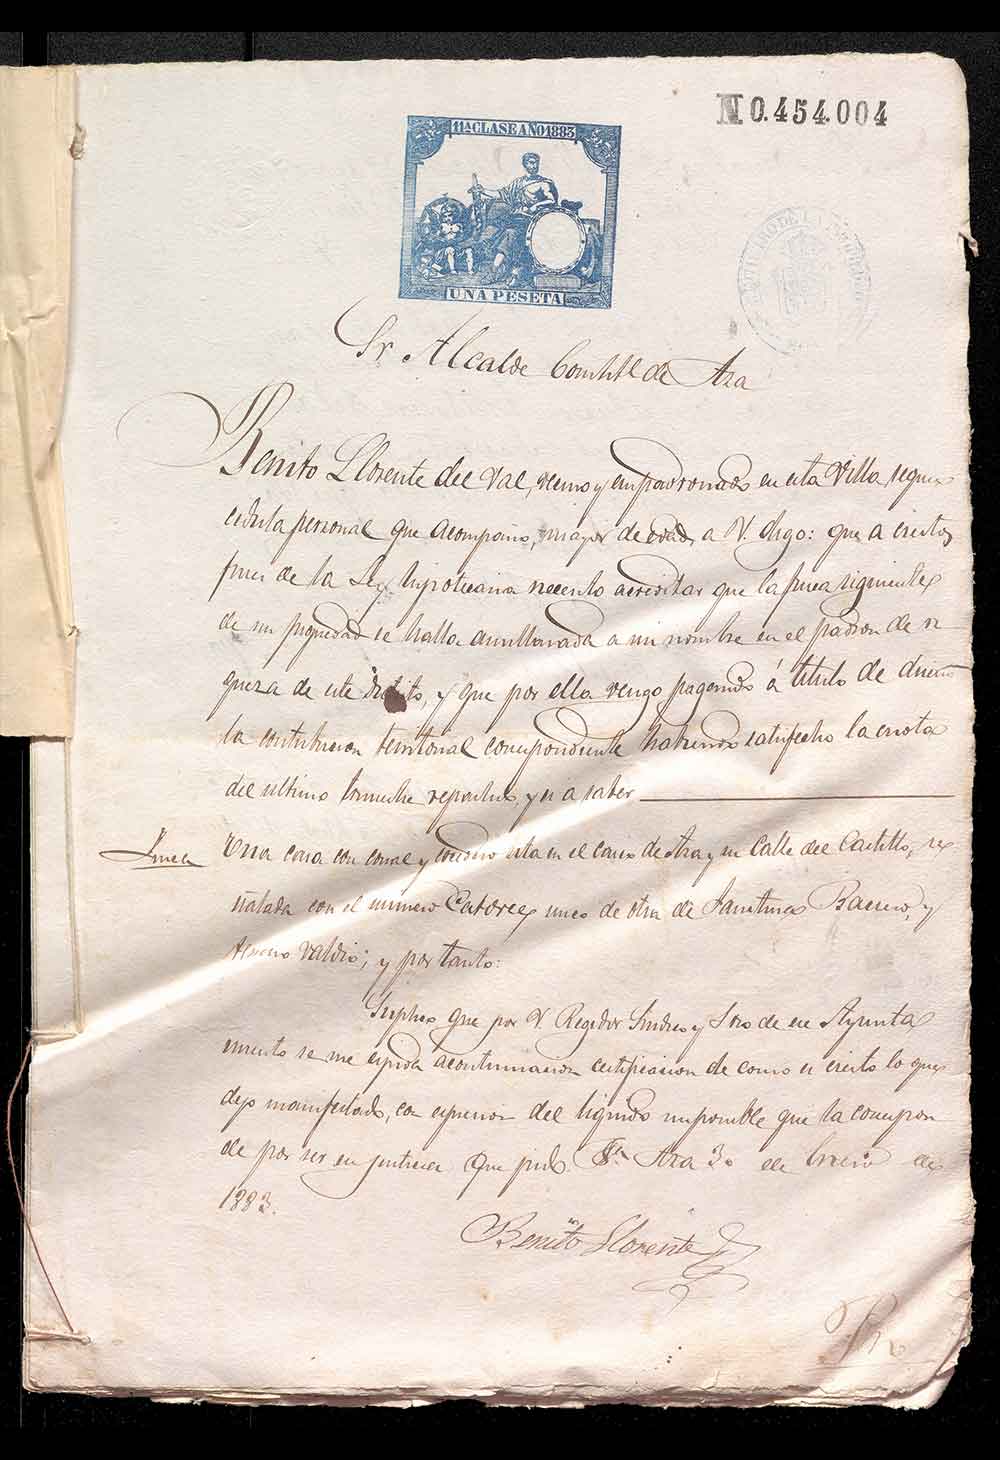 11ª CLASE AÑO 1883
N 0.454.004
UNA PESETA
Sr Alcalde Constl. de Aza
Benito Llorente del Val, vecino y empadronado en esta Villa segun
cedula personal que acompaño, mayor de edad, a V. digo: que a ciertos
fines de la Ley hipotecaria necesito acreditar que la finca siguiente
de mi propiedad se halla amillarada a mi nombre en el padron de ri
queza de este distrito, y que por ella vengo pagando á titulo de dueño
la contribucion territorial correspondiente habiendo satisfecho la cuota
del ultimo trimestre repartido, y es a saber
Finca
Una casa con corral y sita en el casco de Aza y su Calle del Castillo, se
ñalada con el numero Catorce, linda de otra de Baciero, y
terreno valdio; y por tanto:
Suplico que por V. Regidor Sindico y Srio de ese Ayunta
miento se me espida acontinuacion certificacion de como es cierto lo que
dejo manifestado, con espresion del liquido imponible que la corespon
de por ser en justicia que pido. En Aza 30 de Enero de
1883.
Benito Llorente